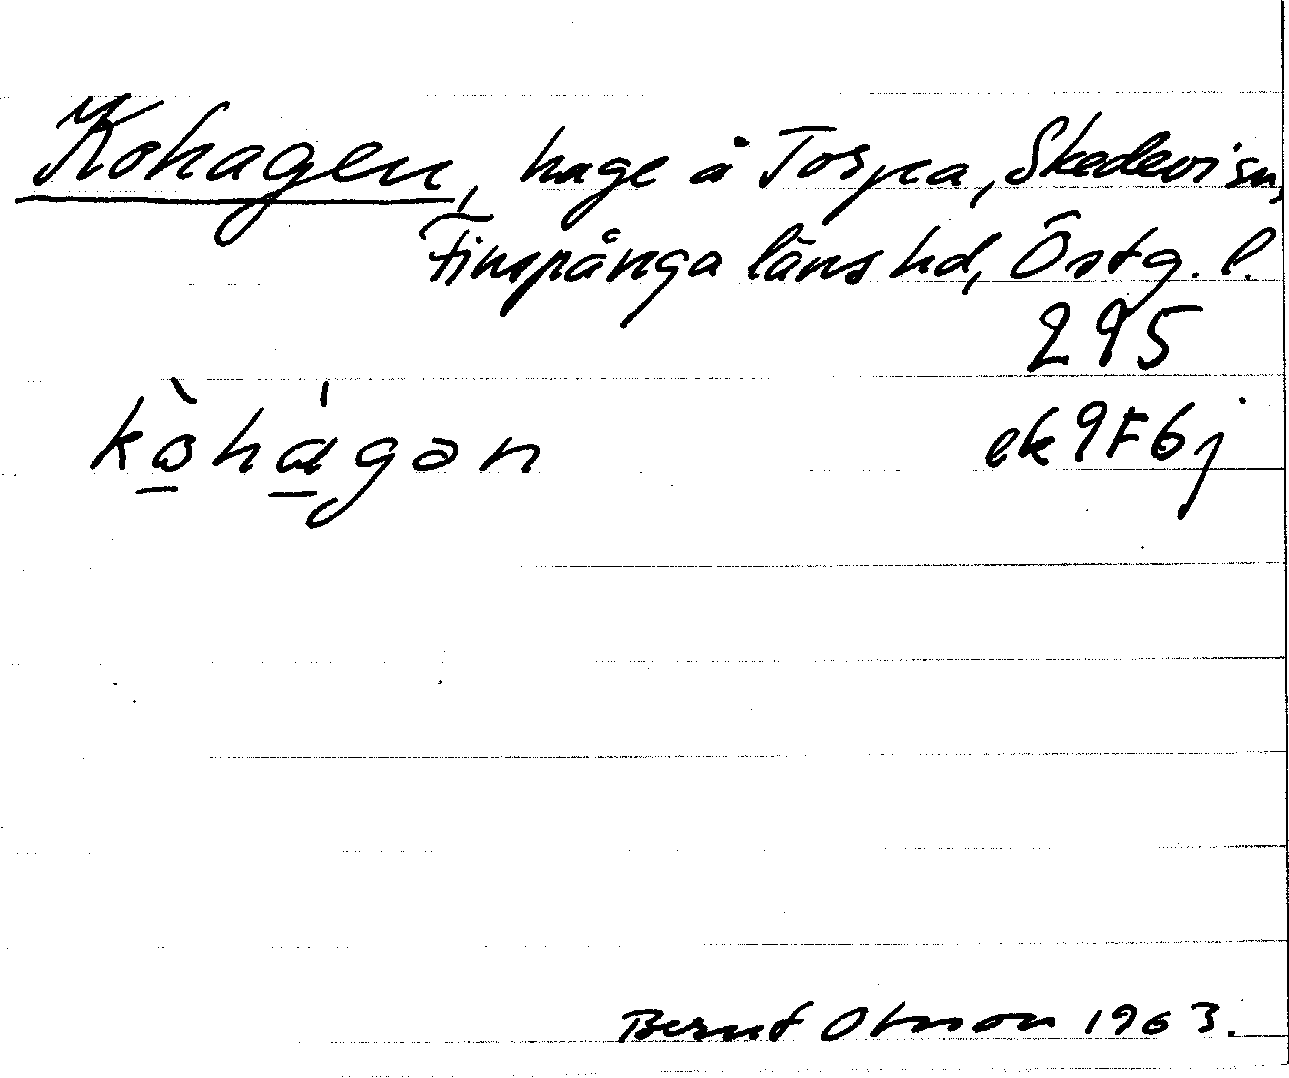 Kohagen, hage å Torpa, Skedevi sn,
Finspånga läns hd, Östg. l.
295
kòhágən
ek 9F6j
Bernt Olsson 1963.